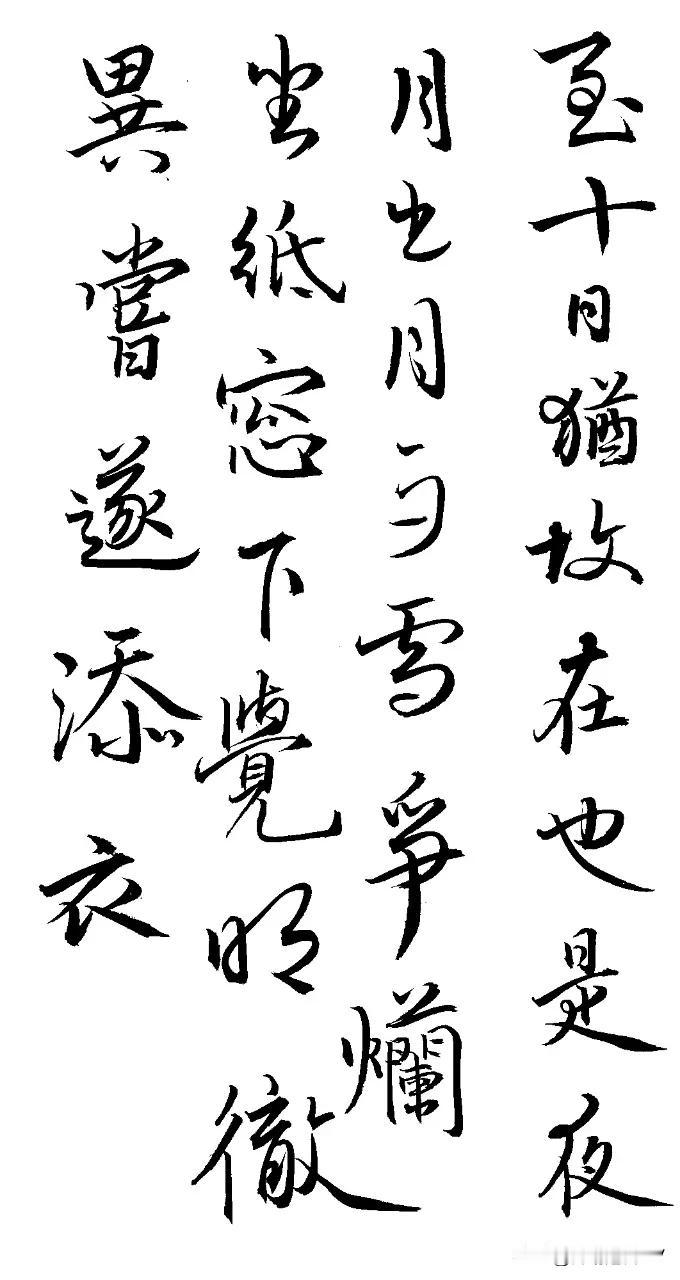 至十日猶故在也是夜
月出月与雪爭爛
坐紙窓下覺明徹
異嘗遂添衣